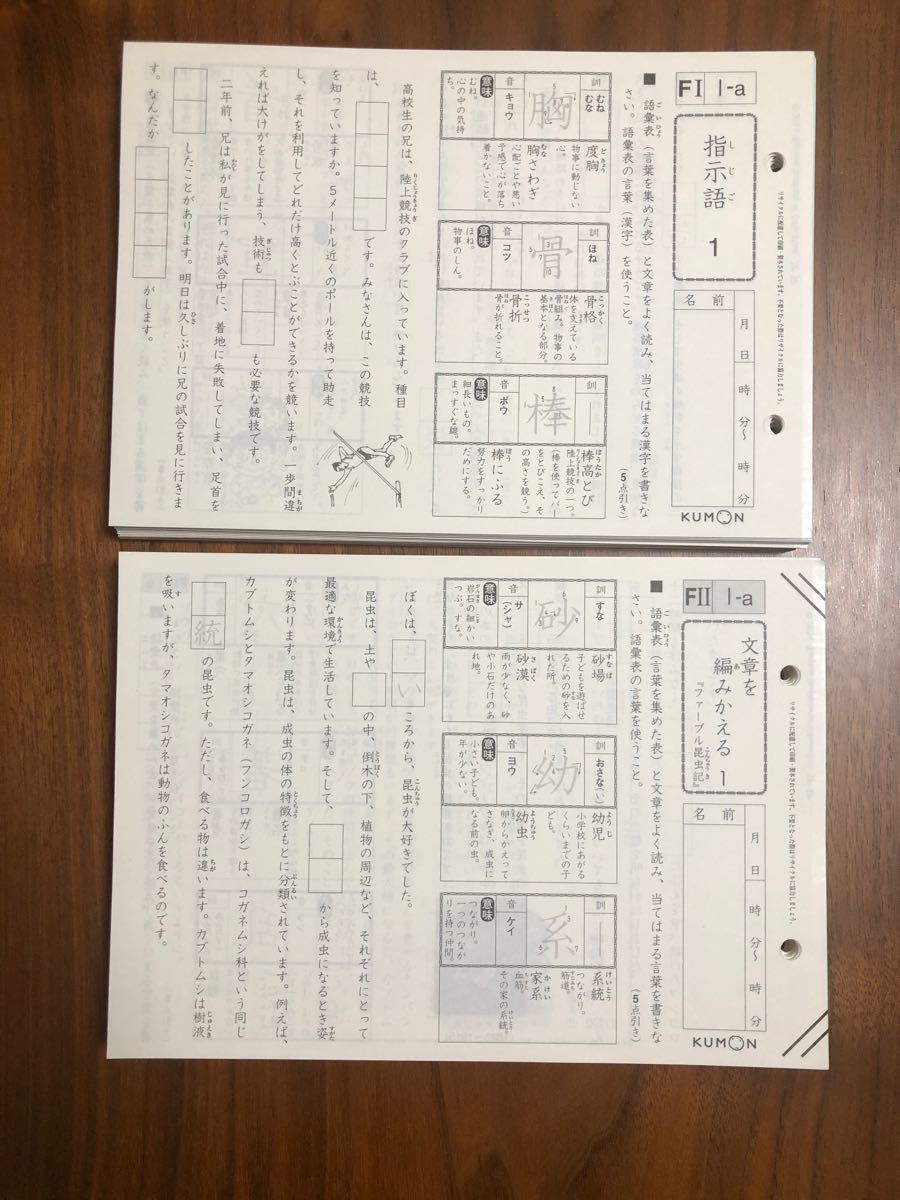 リサイクルに配慮して印刷・製本されています。不用となった際はリサイクルに協力しましょう。
FⅠ 1-a
指示語 1
名前
月 日 時 分〜 時 分
KUMON
■語彙表（言葉を集めた表）と文章をよく読み、当てはまる漢字を書きな
さい。語彙表の言葉（漢字）を使うこと。
（5点引き）
訓 むね むな
胸
音 キョウ
意味
むね。
心の中の気持
ち。
度胸
物事に動じない
心。
胸さわぎ
心配ごとや悪い
予感で心が落ち
着かないこと。
訓 ほね
骨
音 コツ
意味
ほね。
物事のしん。
骨格
体を支えている
骨組み。物事の
基本となる部分。
骨折
骨が折れること。
訓 ―
棒
音 ボウ
意味
細長いもの。
まっすぐな線。
棒高とび
陸上競技の一つ。
（棒を使ってバー
をとびこえ、そ
の高さを競う。）
棒にふる
努力をすっかり
だめにする。
高校生の兄は、陸上競技のクラブに入っています。種目
は、□□□□です。みなさんは、この競技
を知っていますか。5メートル近くのポールを持って助走
し、それを利用してどれだけ高くとぶことができるかを競います。一歩間違
えれば大けがをしてしまう、技術も□□も必要な競技です。
二年前、兄は私が見に行った試合中に、着地に失敗してしまい、足首を
□□したことがあります。明日は久しぶりに兄の試合を見に行きま
す。なんだか□□□□がします。
リサイクルに配慮して印刷・製本されています。不用となった際はリサイクルに協力しましょう。
FⅡ 1-a
文章を
編みかえる 1
『ファーブル昆虫記』
名前
月 日 時 分〜 時 分
KUMON
■語彙表（言葉を集めた表）と文章をよく読み、当てはまる言葉を書きな
さい。語彙表の言葉を使うこと。
（5点引き）
訓 すな
砂
音 サ（シャ）
意味
岩石の細かい
つぶ。すな。
砂場
子どもを遊ばせ
るための砂を入
れた所。
砂漠
雨が少なく、砂
や小石だけのあ
れ地。
訓 おさな（い）
幼
音 ヨウ
意味
小さい子ども。
年が少ない。
幼児
小学校にあがる
くらいまでの子
ども。
幼虫
卵からかえって
さなぎ、成虫に
なる前の虫。
訓 ―
系
音 ケイ
意味
つながり。
一つのつなが
りを持つ仲間。
系統
つながり。
筋道。
家系
その家の系統。
血筋。
ぼくは、□いころから、昆虫が大好きでした。
昆虫は、土や□の中、倒木の下、植物の周辺など、それぞれにとって
最適な環境で生活しています。そして、□□から成虫になるとき姿
が変わります。昆虫は、成虫の体の特徴をもとに分類されています。例えば、
カブトムシとタマオシコガネ（フンコロガシ）は、コガネムシ科という同じ
□統の昆虫です。ただし、食べる物は違います。カブトムシは樹液
を吸いますが、タマオシコガネは動物のふんを食べるのです。